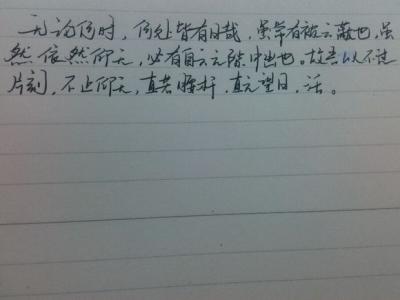 无论何时，何处皆有日哉，虽常有被云蔽也，虽
然依然仰天，必有自云之隙中出也。故吾以不过
片刻，不止仰天，直其腰杆，直立望日，活。